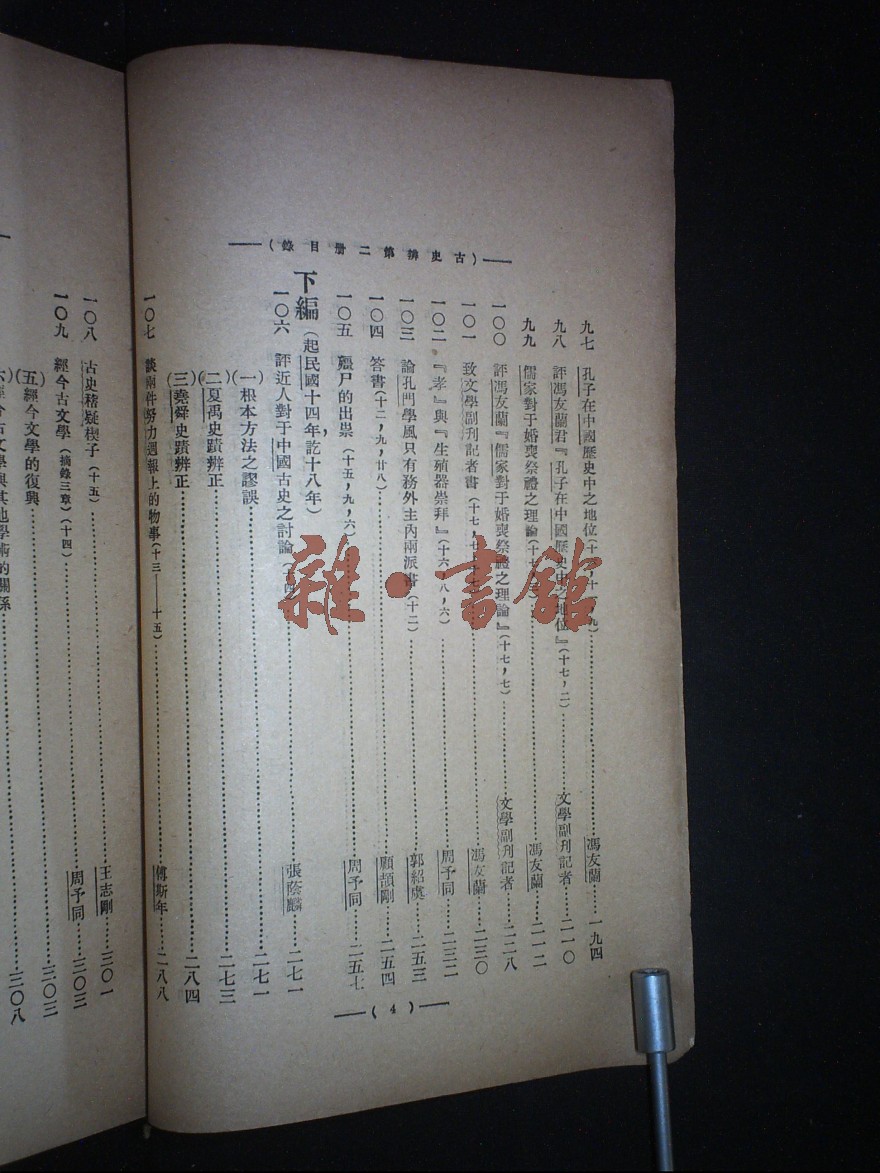 （古史辨第二册目錄）
九七 孔子在中國歷史中之地位 馮友蘭……一九四
九八 評馮友蘭君『孔子在中國歷史中之地位』（十七，二）……文學副刊記者……二一〇
九九 儒家對于婚喪祭禮之理論 馮友蘭……二一二
一〇〇 評馮友蘭『儒家對于婚喪祭禮之理論』（十七，七）……文學副刊記者……二二八
一〇一 致文學副刊記者書 馮友蘭……二三〇
一〇二 『孝』與『生殖器崇拜』（十六，八，六）……周予同……二三二
一〇三 論孔門學風只有務外主內兩派書（十二）……郭紹虞……二五三
一〇四 答書（十二，九，廿八）……顧頡剛……二五四
一〇五 殭尸的出祟（十五，九，六）……周予同……二五七
下編（起民國十四年，訖十八年）
一〇六 評近人對于中國古史之討論（十四）……張蔭麟……二七一
（一）根本方法之謬誤……二七一
（二）夏禹史蹟辨正……二七三
（三）堯舜史蹟辨正……二八四
一〇七 談兩件努力週報上的物事（十三——十五）……傅斯年……二八八
（4）
一〇八 古史稽疑楔子（十五）……王志剛……三〇一
一〇九 經今古文學（摘錄三章）（十四）……周予同……三〇三
（五）經今文學的復興……三〇三
（六）經今古文學與其他學術的關係……三〇八
雜·書館